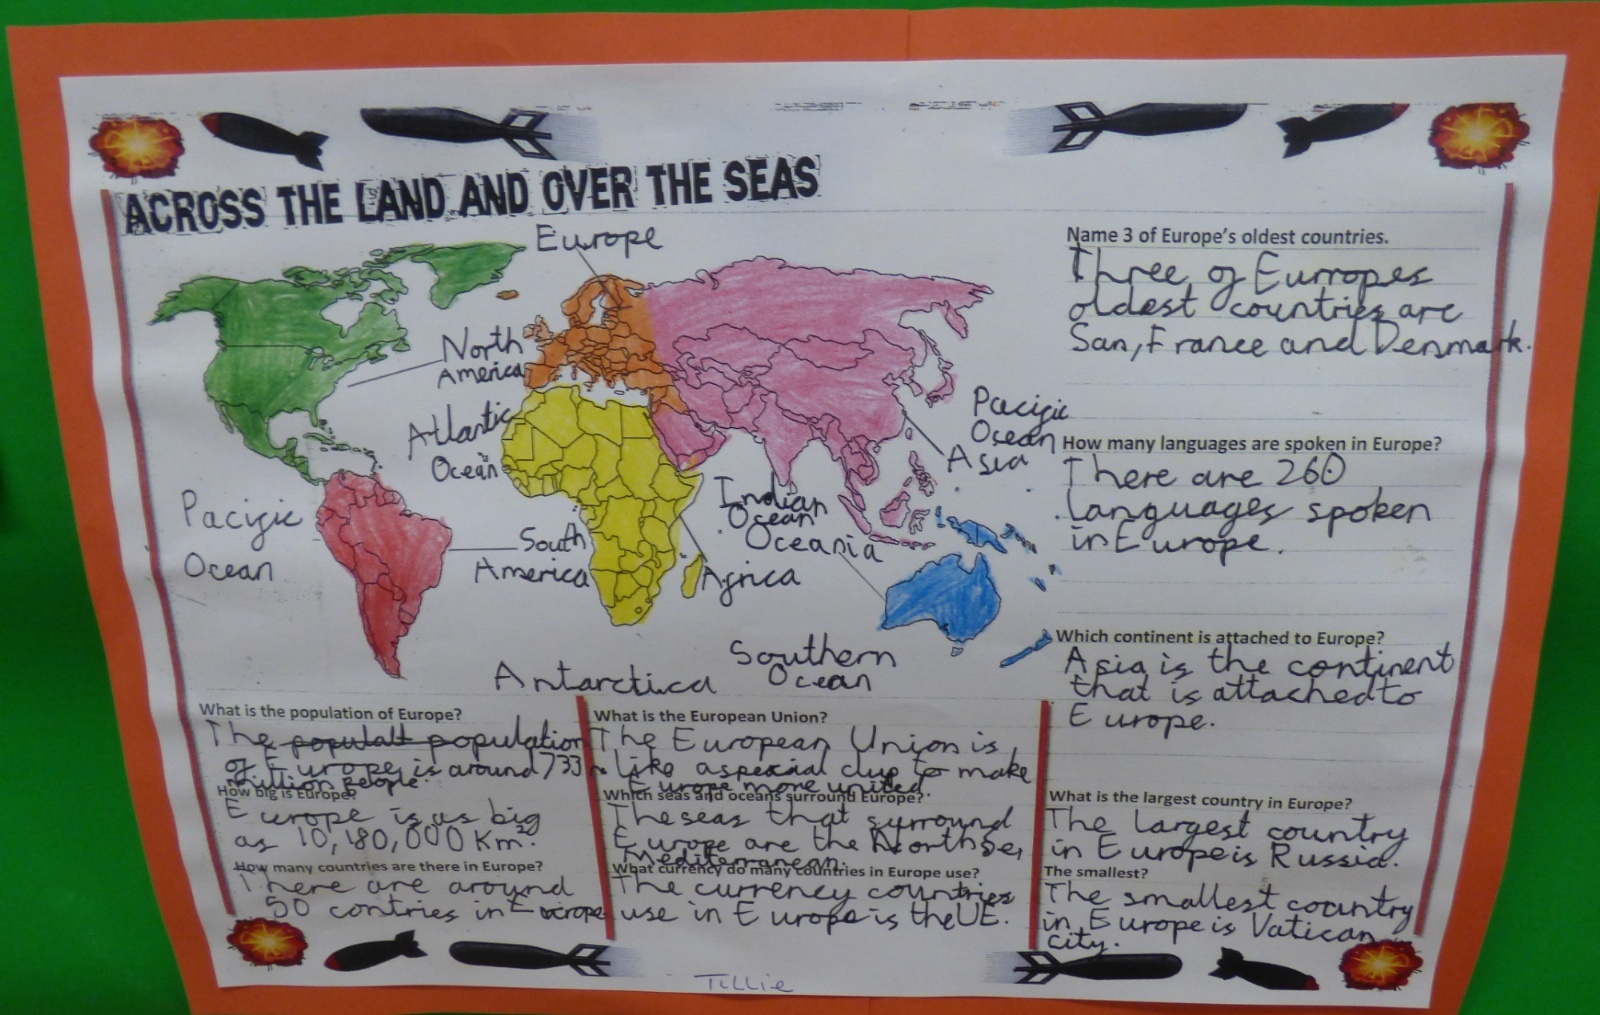 ACROSS THE LAND AND OVER THE SEAS
Europe
North
America
Atlantic
Ocean
Pacific
Ocean
South
America
Africa
Indian
Ocean
Oceania
Pacific
Ocean
Asia
Southern
Ocean
Antarctica
Name 3 of Europe's oldest countries.
Three of Eurropes
oldest countries are
San, France and Denmark.
How many languages are spoken in Europe?
There are 260
languages spoken
in Europe.
Which continent is attached to Europe?
Asia is the continent
that is attached to
Europe.
What is the population of Europe?
The populatt population
of Europe is around 733
million people.
How big is Europe?
Europe is as big
as 10,180,000 Km².
How many countries are there in Europe?
There are around
50 contries in Europe
What is the European Union?
The European Union is
like a special clup to make
Europe more united.
Which seas and oceans surround Europe?
The seas that surround
Europe are the North Se,
Mediterranean.
What currency do many countries in Europe use?
The currency countries
use in Europe is the UE.
What is the largest country in Europe?
The largest country
in Europe is Russia.
The smallest?
The smallest country
in Europe is Vatican
city.
Tillie